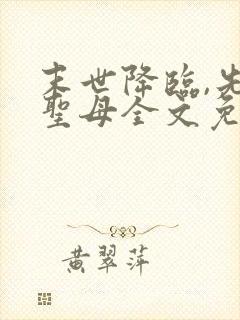 末世降臨,先
聖母全文免
黄翠萍